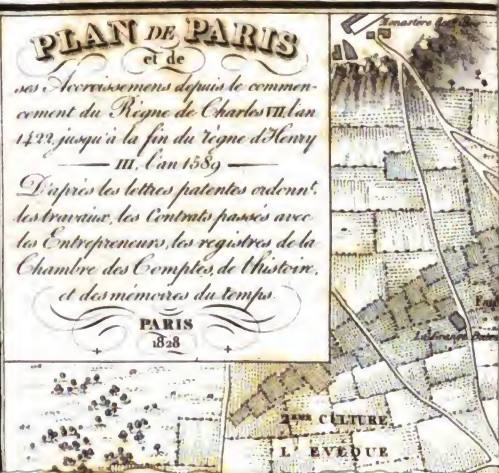 PLAN DE PARIS
et de
ses Accroissemens depuis le commen-
cement du Règne de Charles VII, l'an
1422, jusqu'à la fin du règne d'Henry
III, l'an 1589
D'après les lettres patentes ordonn.s,
les travaux, les Contrats passés avec
les Entrepreneurs, les registres de la
Chambre des Comptes, de l'histoire,
et des mémoires du temps.
PARIS
1828
Monastère
2.eme CULTURE
L' EVEQUE